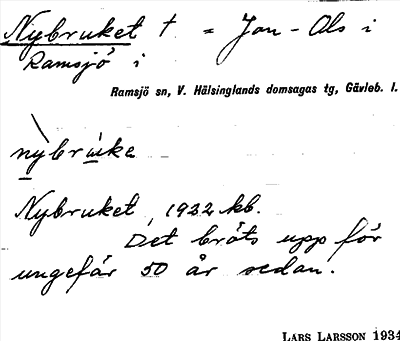 Nybruket † = Jon-Ols i
Ramsjö i
Ramsjö sn, V. Hälsinglands domsagas tg, Gävleb. l.
nybruke
Nybruket, 1932 kb.
Det bröts upp för
ungefär 50 år sedan.
LARS LARSSON 1934